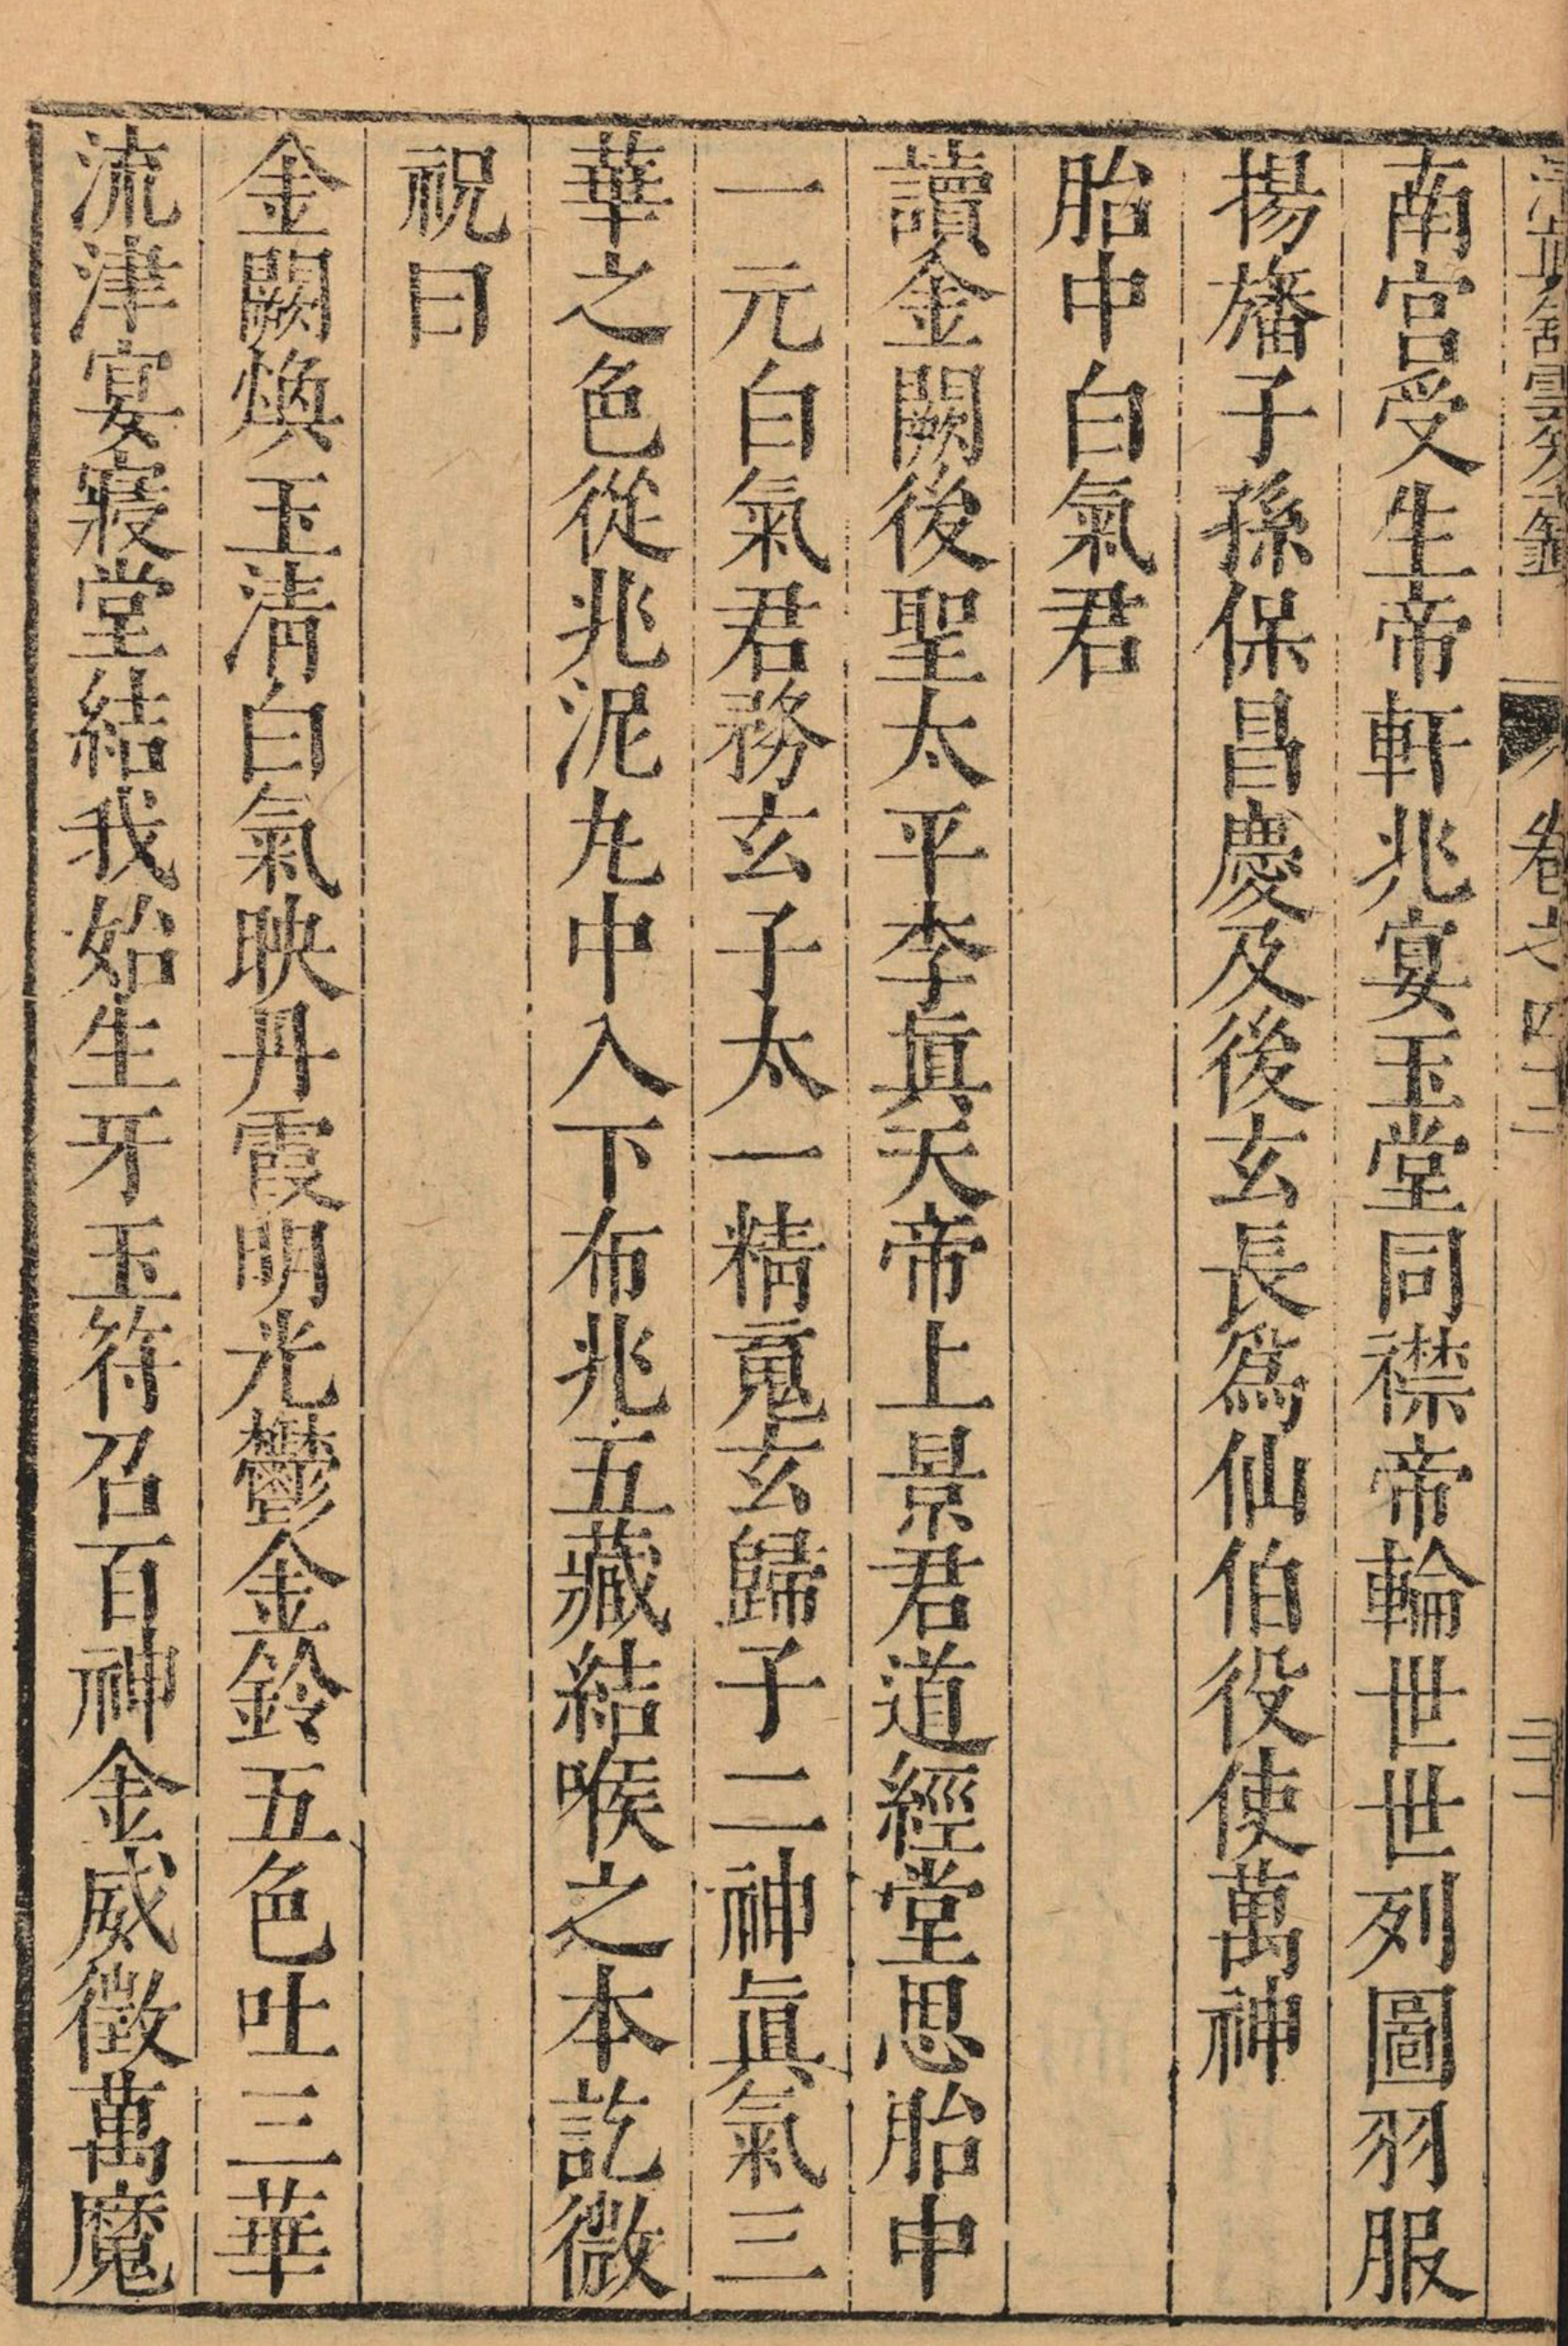 清真館雲笈七籤 卷之四十二
南宮受生帝軒兆宴玉堂同襟帝輪世世列圖羽服
揚旛子孫保昌慶及後玄長爲仙伯役使萬神
胎中白氣君
讀金闕後聖太平李眞天帝上景君道經堂思胎中
一元白氣君務玄子太一精䰟玄歸子二神眞氣三
華之色從兆泥丸中入下布兆五藏結喉之本訖微
祝曰
金闕煥玉淸白氣映丹霞明光鬱金鈴五色吐三華
流津宴寢堂結我始生牙玉符召百神金威徵萬魔